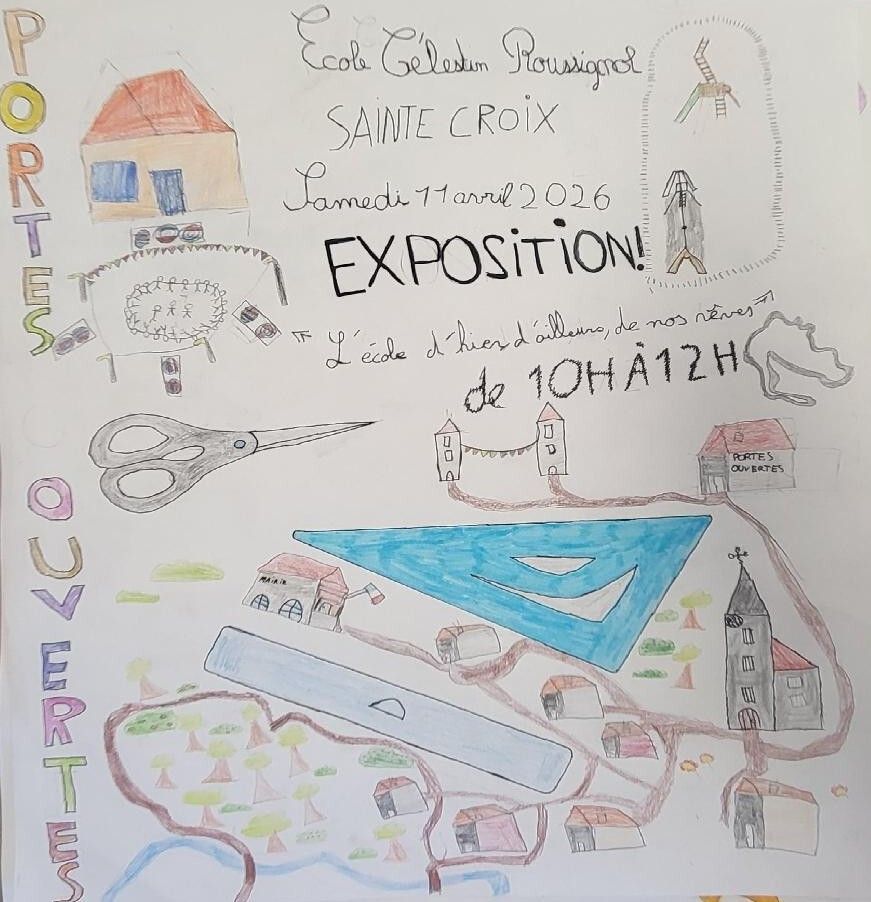 PORTES OUVERTES
École Célestin Roussignol
SAINTE CROIX
Samedi 11 avril 2026
EXPOSITION!
"L'école d'hier, d'ailleurs, de nos rêves"
de 10H À 12H
PORTES
OUVERTES
MAIRIE